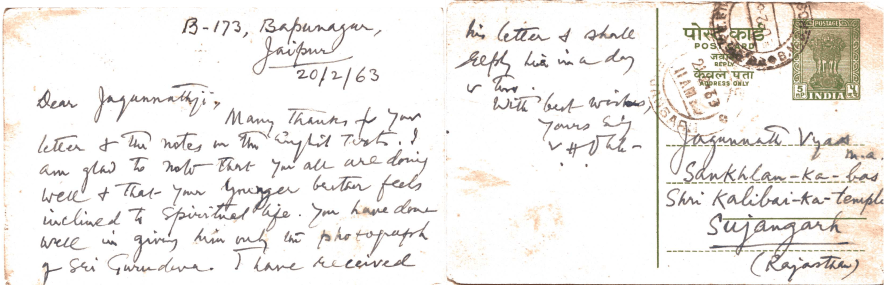 B-173, Bapunagar,
Jaipur
20/2/63
Dear Jagannathji,
Many thanks for your
letter & the notes on the English Texts. I
am glad to note that you all are doing
well & that your younger brother feels
inclined to spiritual life. You have done
well in giving him only the photograph
of Sri Gurudeva. I have received
his letter & shall
reply him in a day
or two.
With best wishes
Yours
पोस्ट कार्ड
POST CARD
जवाब
REPLY
केवल पता
ADDRESS ONLY
POSTAGE
5
INDIA
Jagannath Vyas
M.A.
Sankhlan-ka-bas
Shri Kalibai-ka-temple
Sujangarh
(Rajasthan)